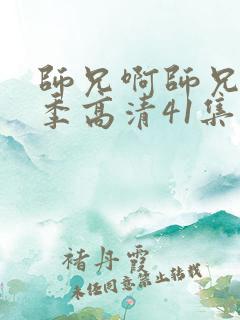 師兄啊師兄
季高清41集
褚丹霞
未經同意禁止轉載